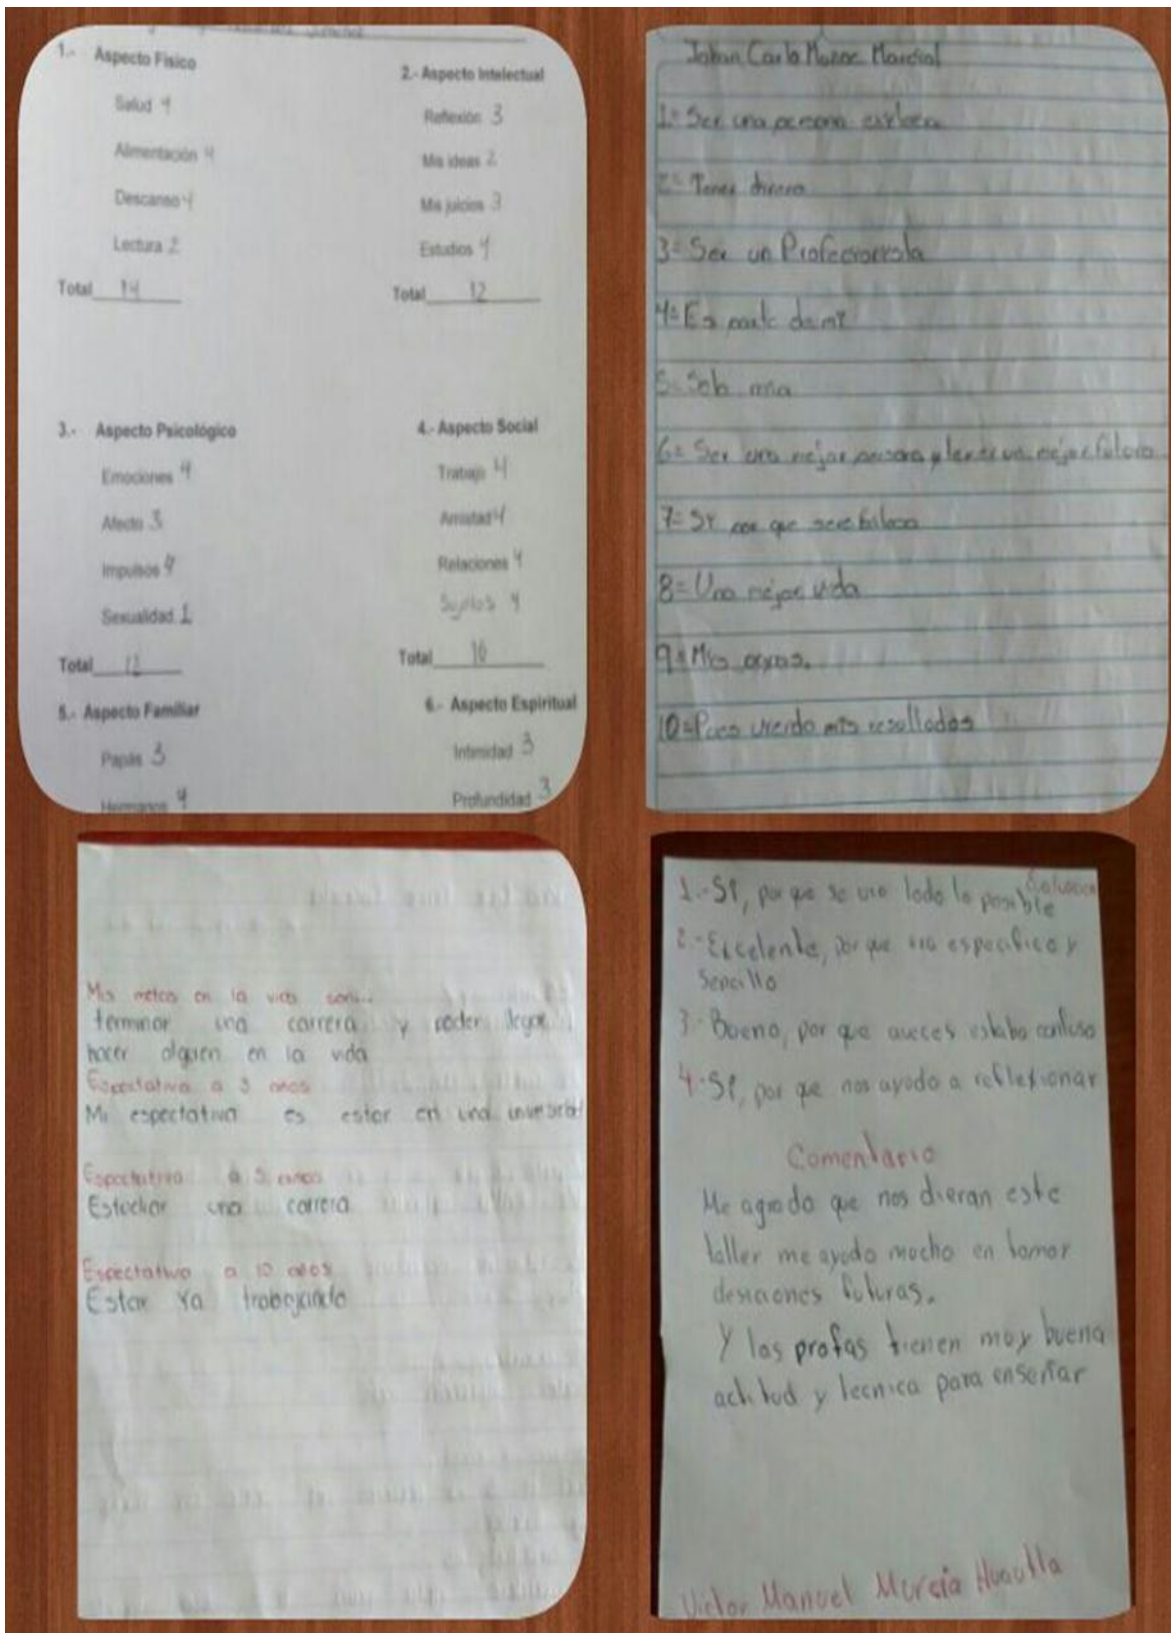 1.- Aspecto Físico
Salud 4
Alimentación 4
Descanso 4
Lectura 2
Total 14
2.- Aspecto Intelectual
Reflexión 3
Mis ideas 2
Mis juicios 3
Estudios 4
Total 12
3.- Aspecto Psicológico
Emociones 4
Afecto 3
Impulsos 4
Sexualidad 1
Total 12
4.- Aspecto Social
Trabajo 4
Amistad 4
Relaciones 4
Sujetos 4
Total 16
5.- Aspecto Familiar
Papás 3
Hermanos 4
6.- Aspecto Espiritual
Intimidad 3
Profundidad 3
1= Ser una persona
2= Tener dinero
3= Ser un
4= Es parte de mi
5=
6= Ser una mejor persona y tener un mejor futuro
7= Si por que
8= Una mejor vida
9= Mis
10= Pues viendo mis resultados
Mis metas en la vida son...
terminar una carrera y poder
hacer alguien en la vida
Espectativa a 3 años
Mi espectativa es estar en una
Espectativa a 5 años
Estudiar una carrera
Espectativa a 10 años
Estar ya trabajando
1.- Si, por que se vio todo lo posible
2.- Excelente, por que era especifico y
sencillo
3.- Bueno, por que aveces estaba confuso
4.- Si, por que nos ayudo a reflexionar
Comentario
Me agrado que nos dieran este
taller me ayudo mucho en tomar
desiciones futuras.
Y las profas tienen muy buena
actitud y tecnica para enseñar
Victor Manuel Murcia Huautla